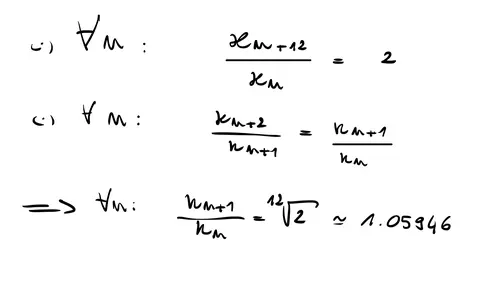 i) ∀n: x_{n+12}/x_n = 2
ii) ∀n: x_{n+2}/x_{n+1} = x_{n+1}/x_n
⟹ ∀n: x_{n+1}/x_n = ¹²√2 ≃ 1.05946